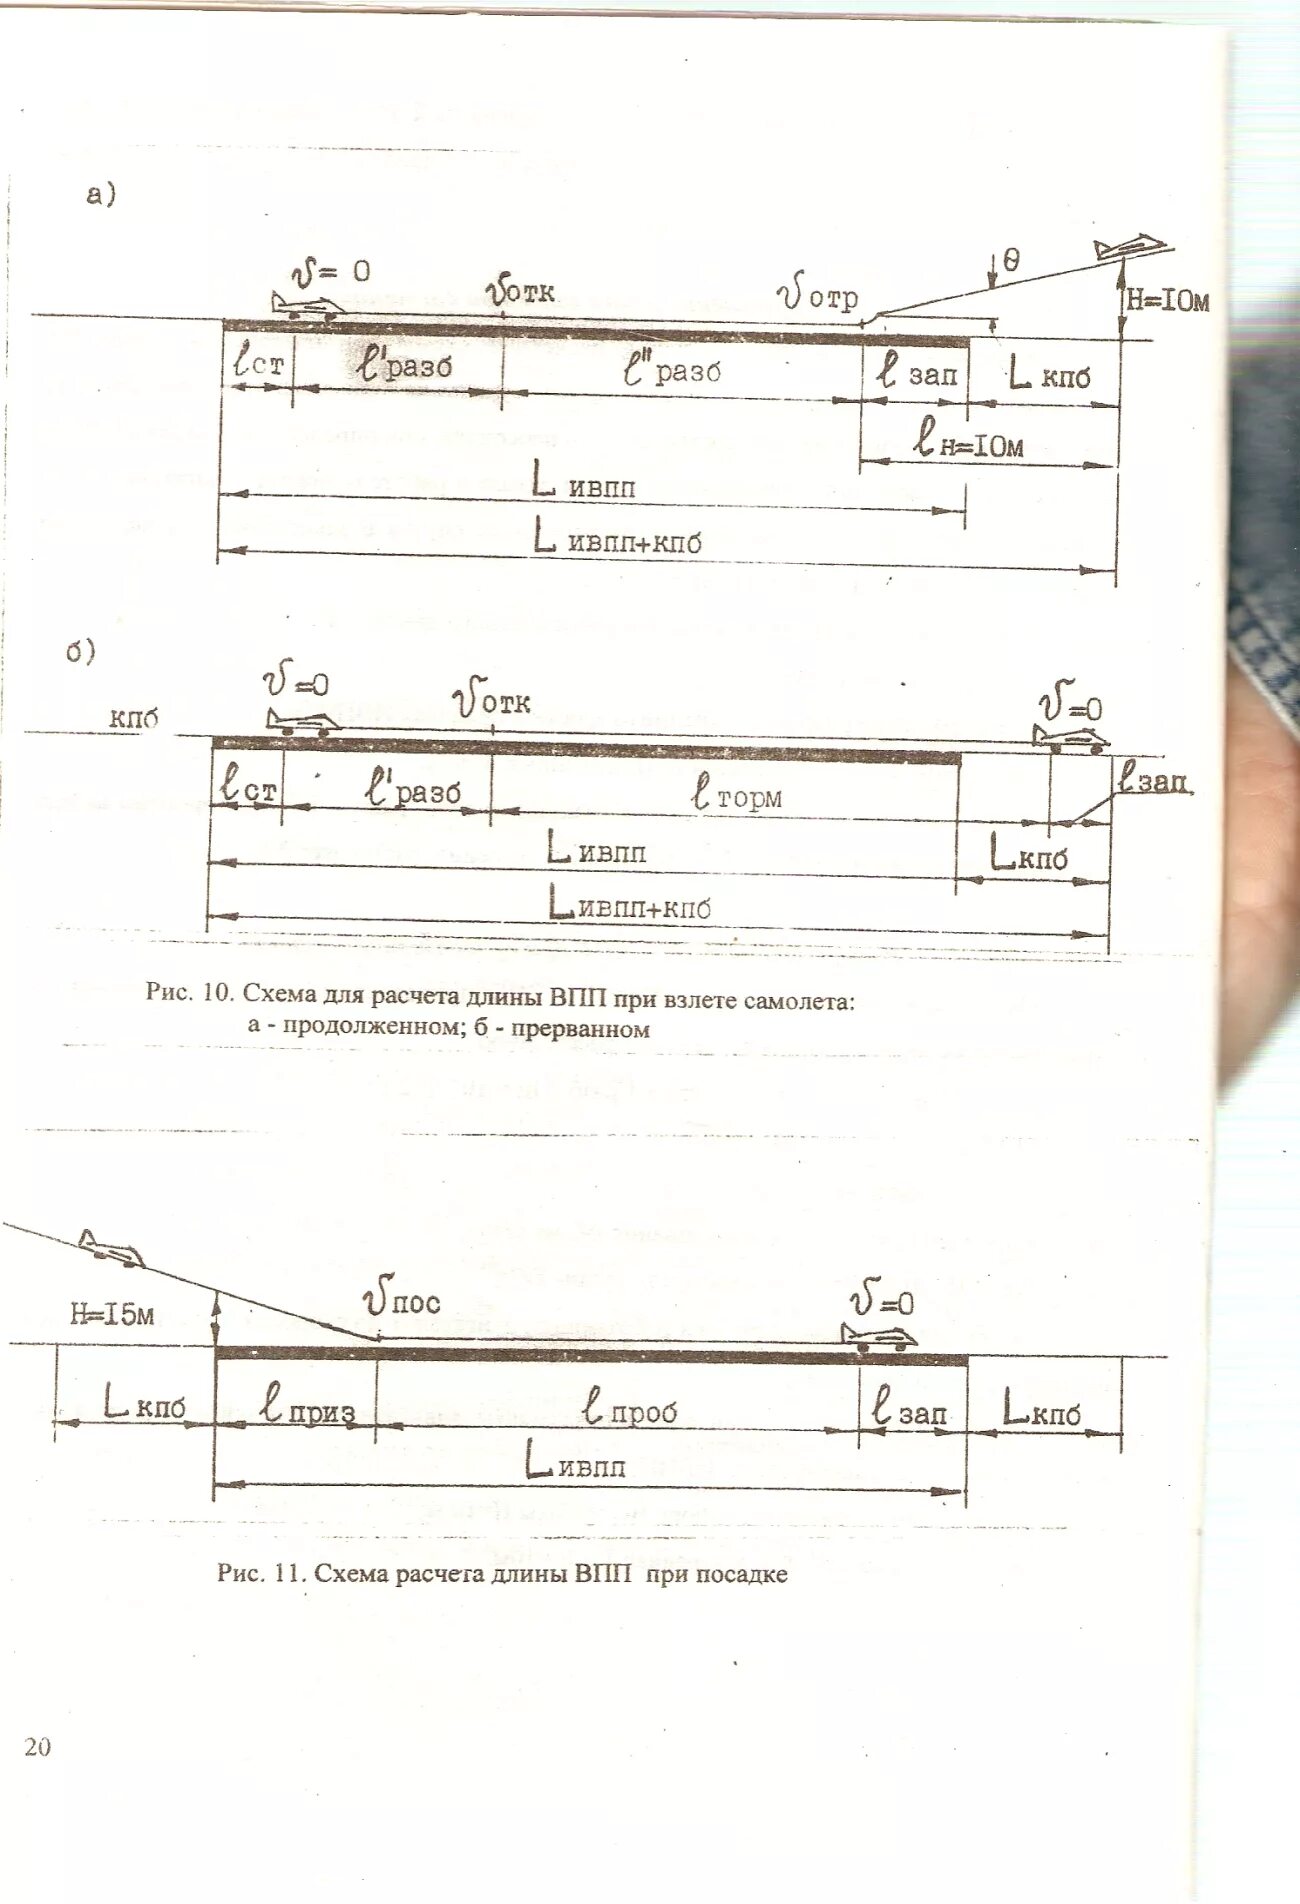 а)
υ= 0
υотк
υотр
θ
H=10м
ℓст
ℓ'разб
ℓ"разб
ℓ зап
L кпб
ℓн=10м
L ивпп
L ивпп+кпб
б)
кпб
υ=0
υотк
υ=0
ℓст
ℓ'разб
ℓ торм
ℓзап.
L ивпп
Lкпб
Lивпп+кпб
Рис. 10. Схема для расчета длины ВПП при взлете самолета:
а - продолженном; б - прерванном
H=15м
υпос
υ=0
L кпб
ℓ приз
ℓ проб
ℓ зап
Lкпб
Lивпп
Рис. 11. Схема расчета длины ВПП при посадке
20